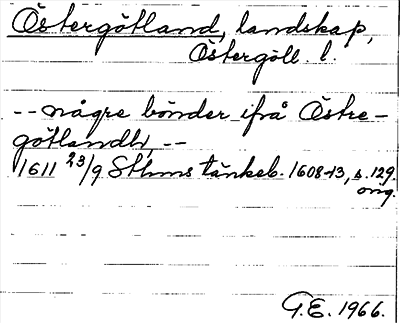 Östergötland, landskap,
Östergötl. l.
-- någre bönder ifrå Östre-
götlandh, --
1611 23/9 Sthms tänkeb. 1608-13, s. 129.
orig.
G.E. 1966.